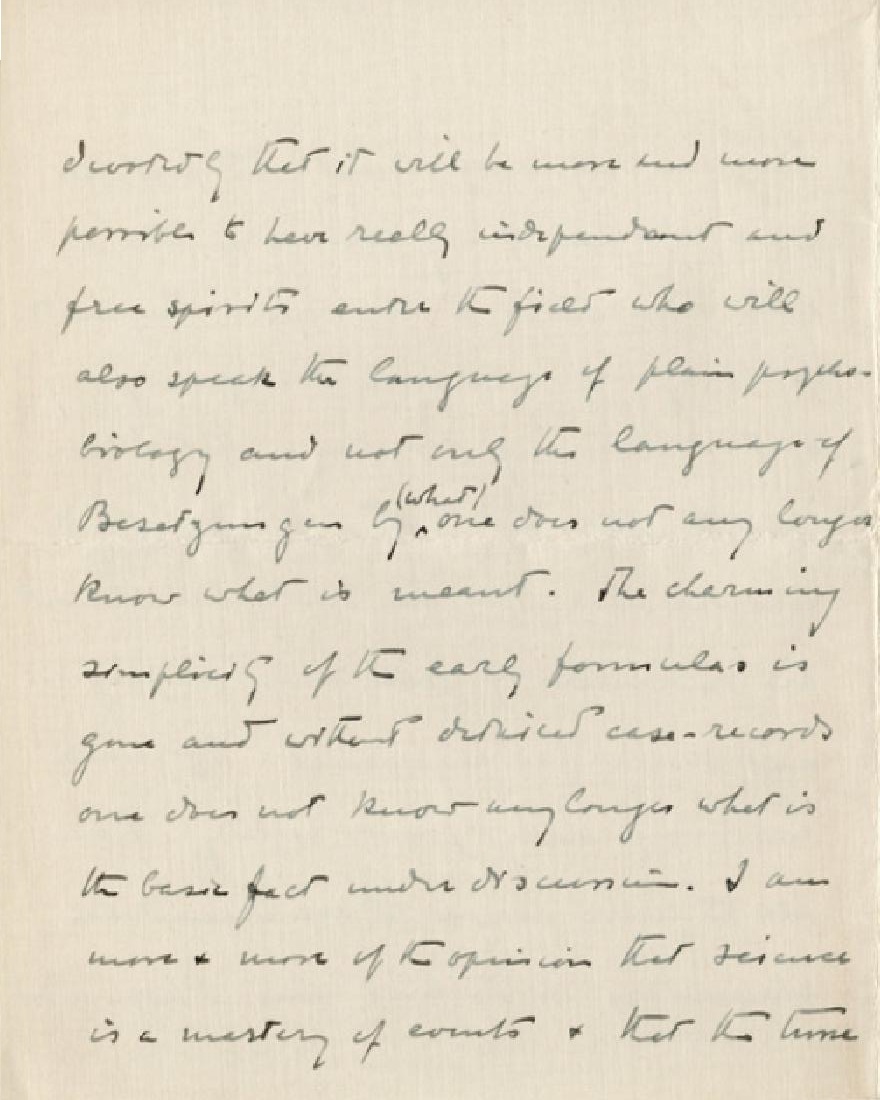 that it will be more and more
possible to have really independent and
free spirits enter the field who will
also speak the language of plain psycho-
biology and not only the language of
Besetzungen by (what) one does not any longer
know what is meant. The charming
simplicity of the early formulas is
gone and without detailed case-records
one does not know any longer what is
the basic fact under discussion. I am
more & more of the opinion that science
is a mastery of events & that the time